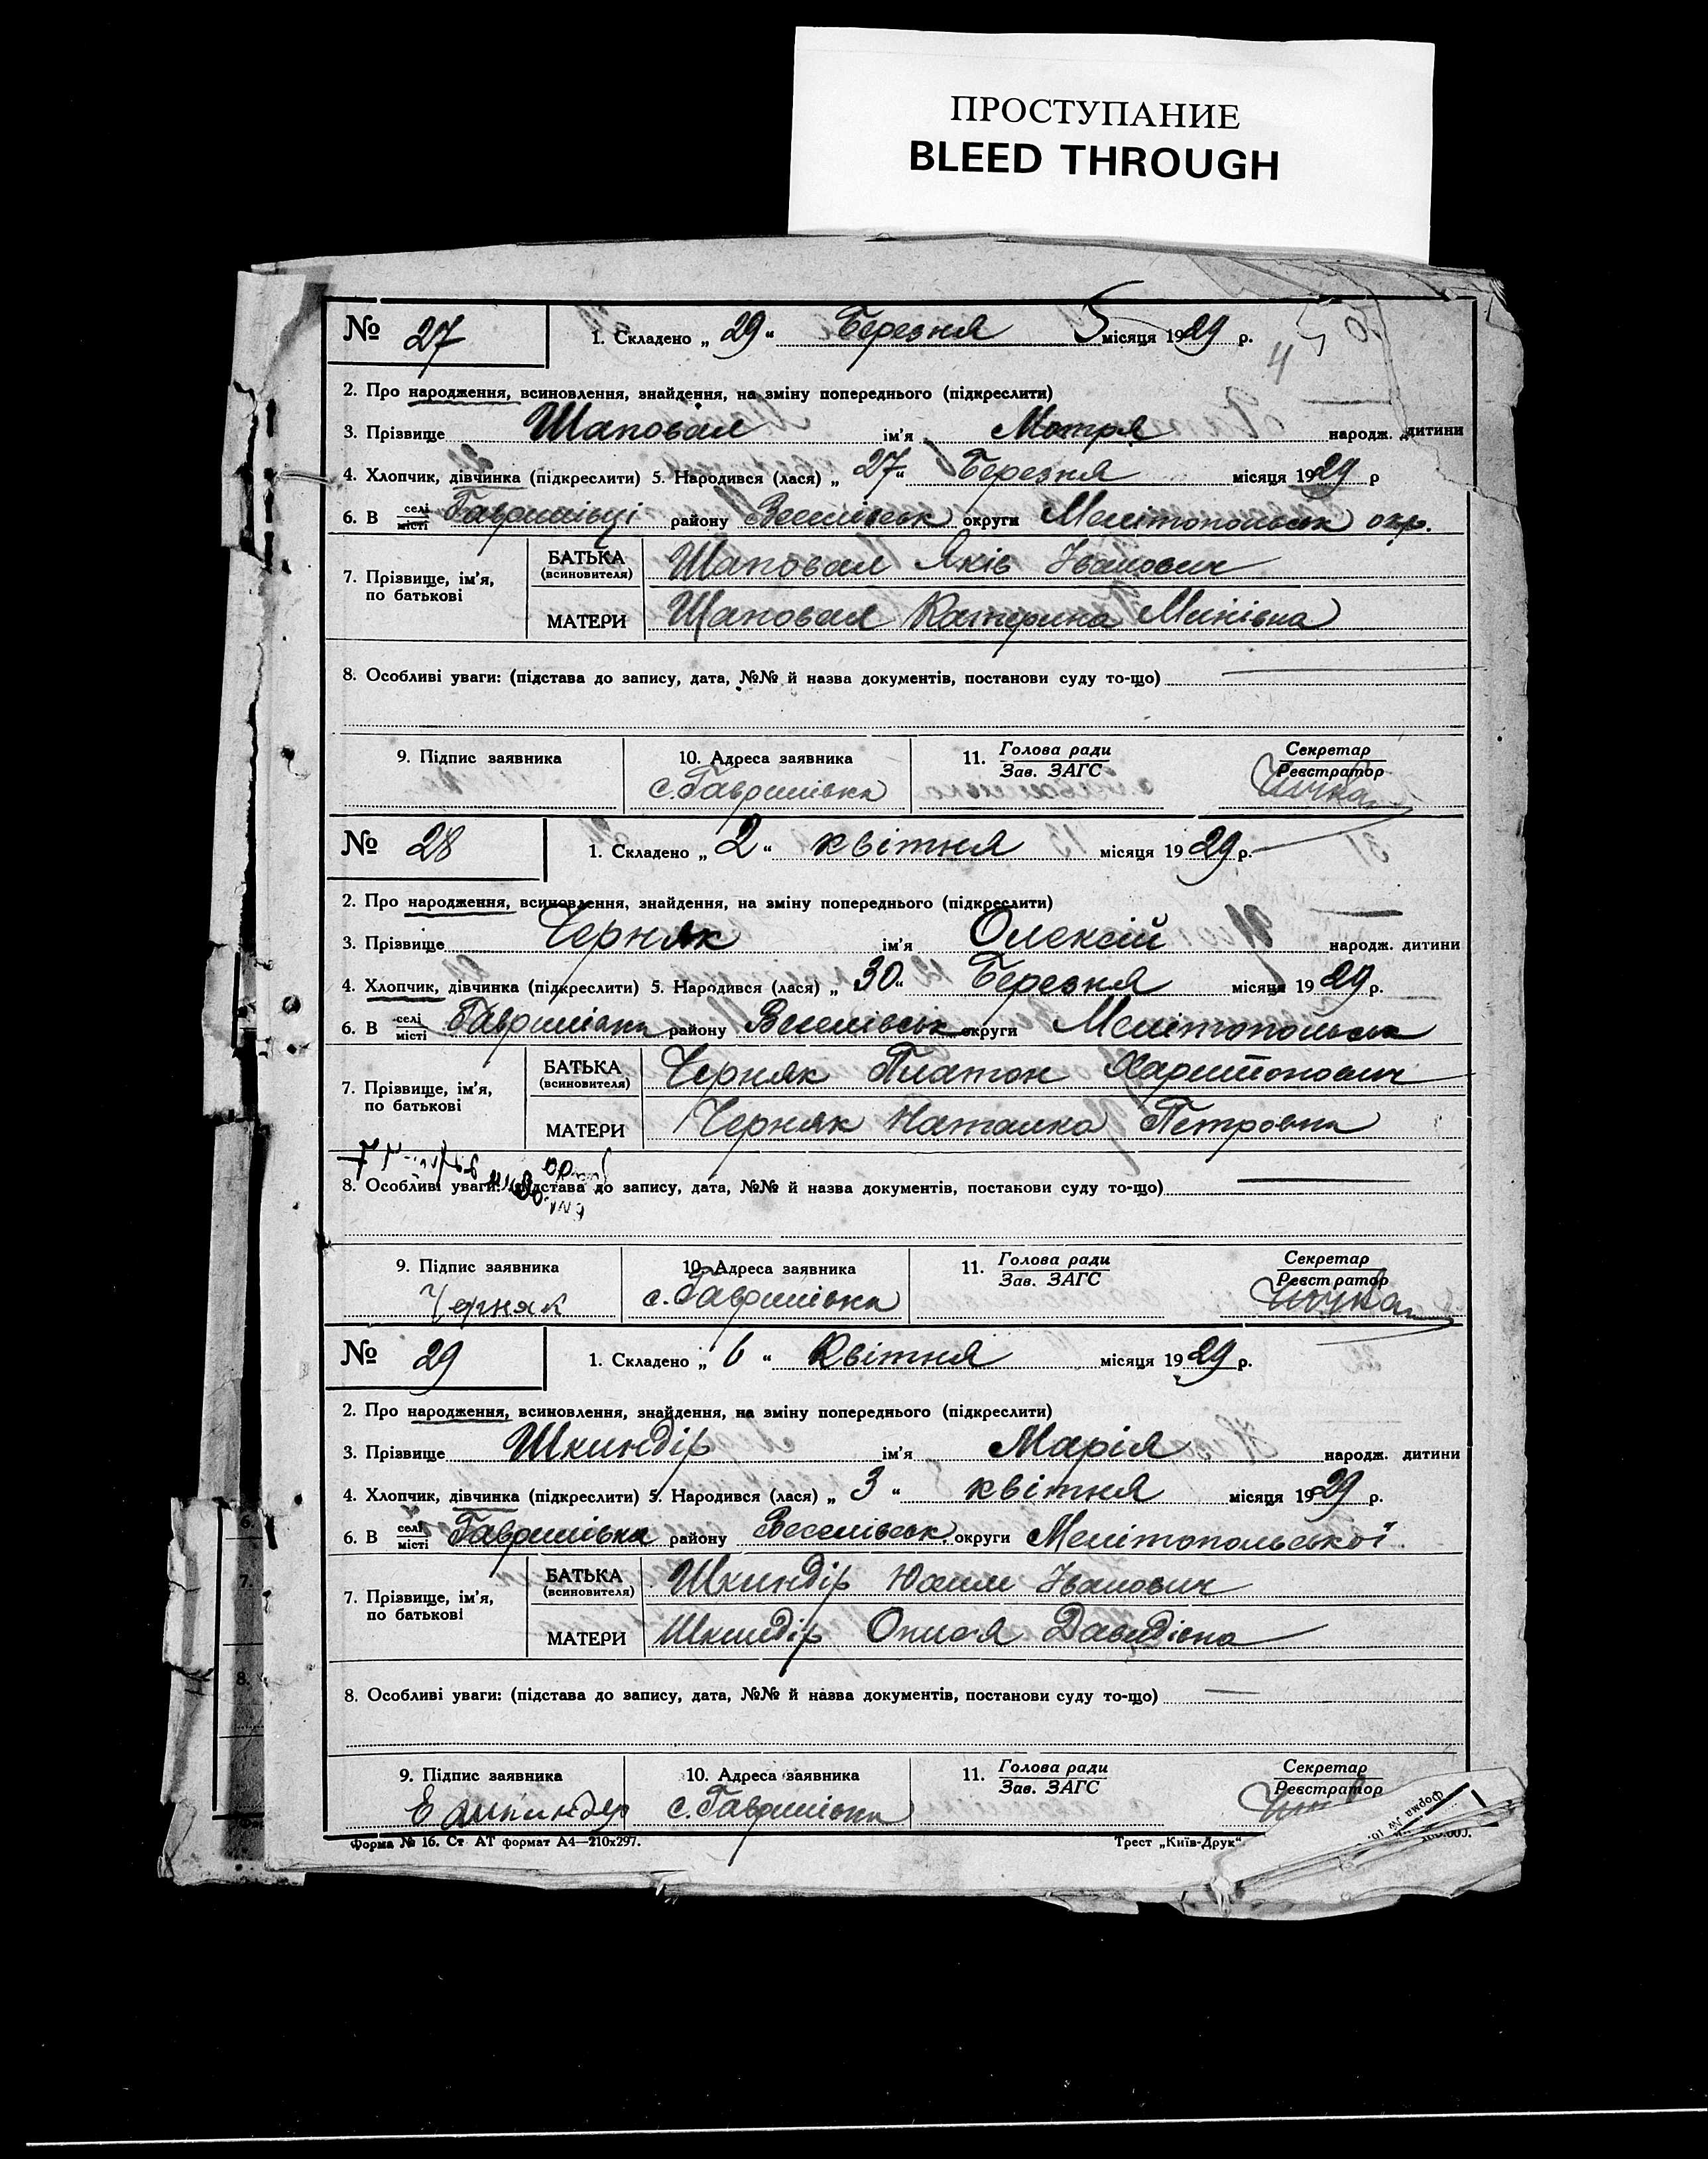 ПРОСТУПАНИЕ
BLEED THROUGH
№ 27
1. Складено „ 29 “ Березня місяця 1929 р.
2. Про народження, всиновлення, знайдення, на зміну попереднього (підкреслити)
3. Прізвище Шаповал ім'я Мотря народж. дитини
4. Хлопчик, дівчинка (підкреслити) 5. Народився (лася) „ 27 “ Березня місяця 1929 р
6. В селі місті Гаврилівці району Веселівськ округи Мелітопольськ окр.
7. Прізвище, ім'я, по батькові
БАТЬКА (всиновителя) Шаповал Яків Іванович
МАТЕРИ Шаповал Катерина Минівна
8. Особливі уваги: (підстава до запису, дата, №№ й назва документів, постанови суду то-що)
9. Підпис заявника 10. Адреса заявника 11. Голова ради Зав. ЗАГС Секретар Реєстратор
с. Гаврилівка
№ 28
1. Складено „ 2 “ квітня місяця 1929 р.
2. Про народження, всиновлення, знайдення, на зміну попереднього (підкреслити)
3. Прізвище Черняк ім'я Олексій народж. дитини
4. Хлопчик, дівчинка (підкреслити) 5. Народився (лася) „ 30 “ Березня місяця 1929 р.
6. В селі місті Гаврилівка району Веселівськ округи Мелітопольськ
7. Прізвище, ім'я, по батькові
БАТЬКА (всиновителя) Черняк Платон Харитонович
МАТЕРИ Черняк Наталка Петровна
8. Особливі уваги: (підстава до запису, дата, №№ й назва документів, постанови суду то-що)
9. Підпис заявника 10. Адреса заявника 11. Голова ради Зав. ЗАГС Секретар Реєстратор
Черняк с. Гаврилівка
№ 29
1. Складено „ 6 “ Квітня місяця 1929 р.
2. Про народження, всиновлення, знайдення, на зміну попереднього (підкреслити)
3. Прізвище Шкиндір ім'я Марія народж. дитини
4. Хлопчик, дівчинка (підкреслити) 5. Народився (лася) „ 3 “ квітня місяця 1929 р.
6. В селі місті Гаврилівка району Веселівськ. округи Мелітопольської
7. Прізвище, ім'я, по батькові
БАТЬКА (всиновителя) Шкиндір Юхим Іванович
МАТЕРИ Шкиндір Давидівна
8. Особливі уваги: (підстава до запису, дата, №№ й назва документів, постанови суду то-що)
9. Підпис заявника 10. Адреса заявника 11. Голова ради Зав. ЗАГС Секретар Реєстратор
с. Гаврилівка
Форма № 16. Ст АТ формат А4—210х297. Трест „Київ-Друк“